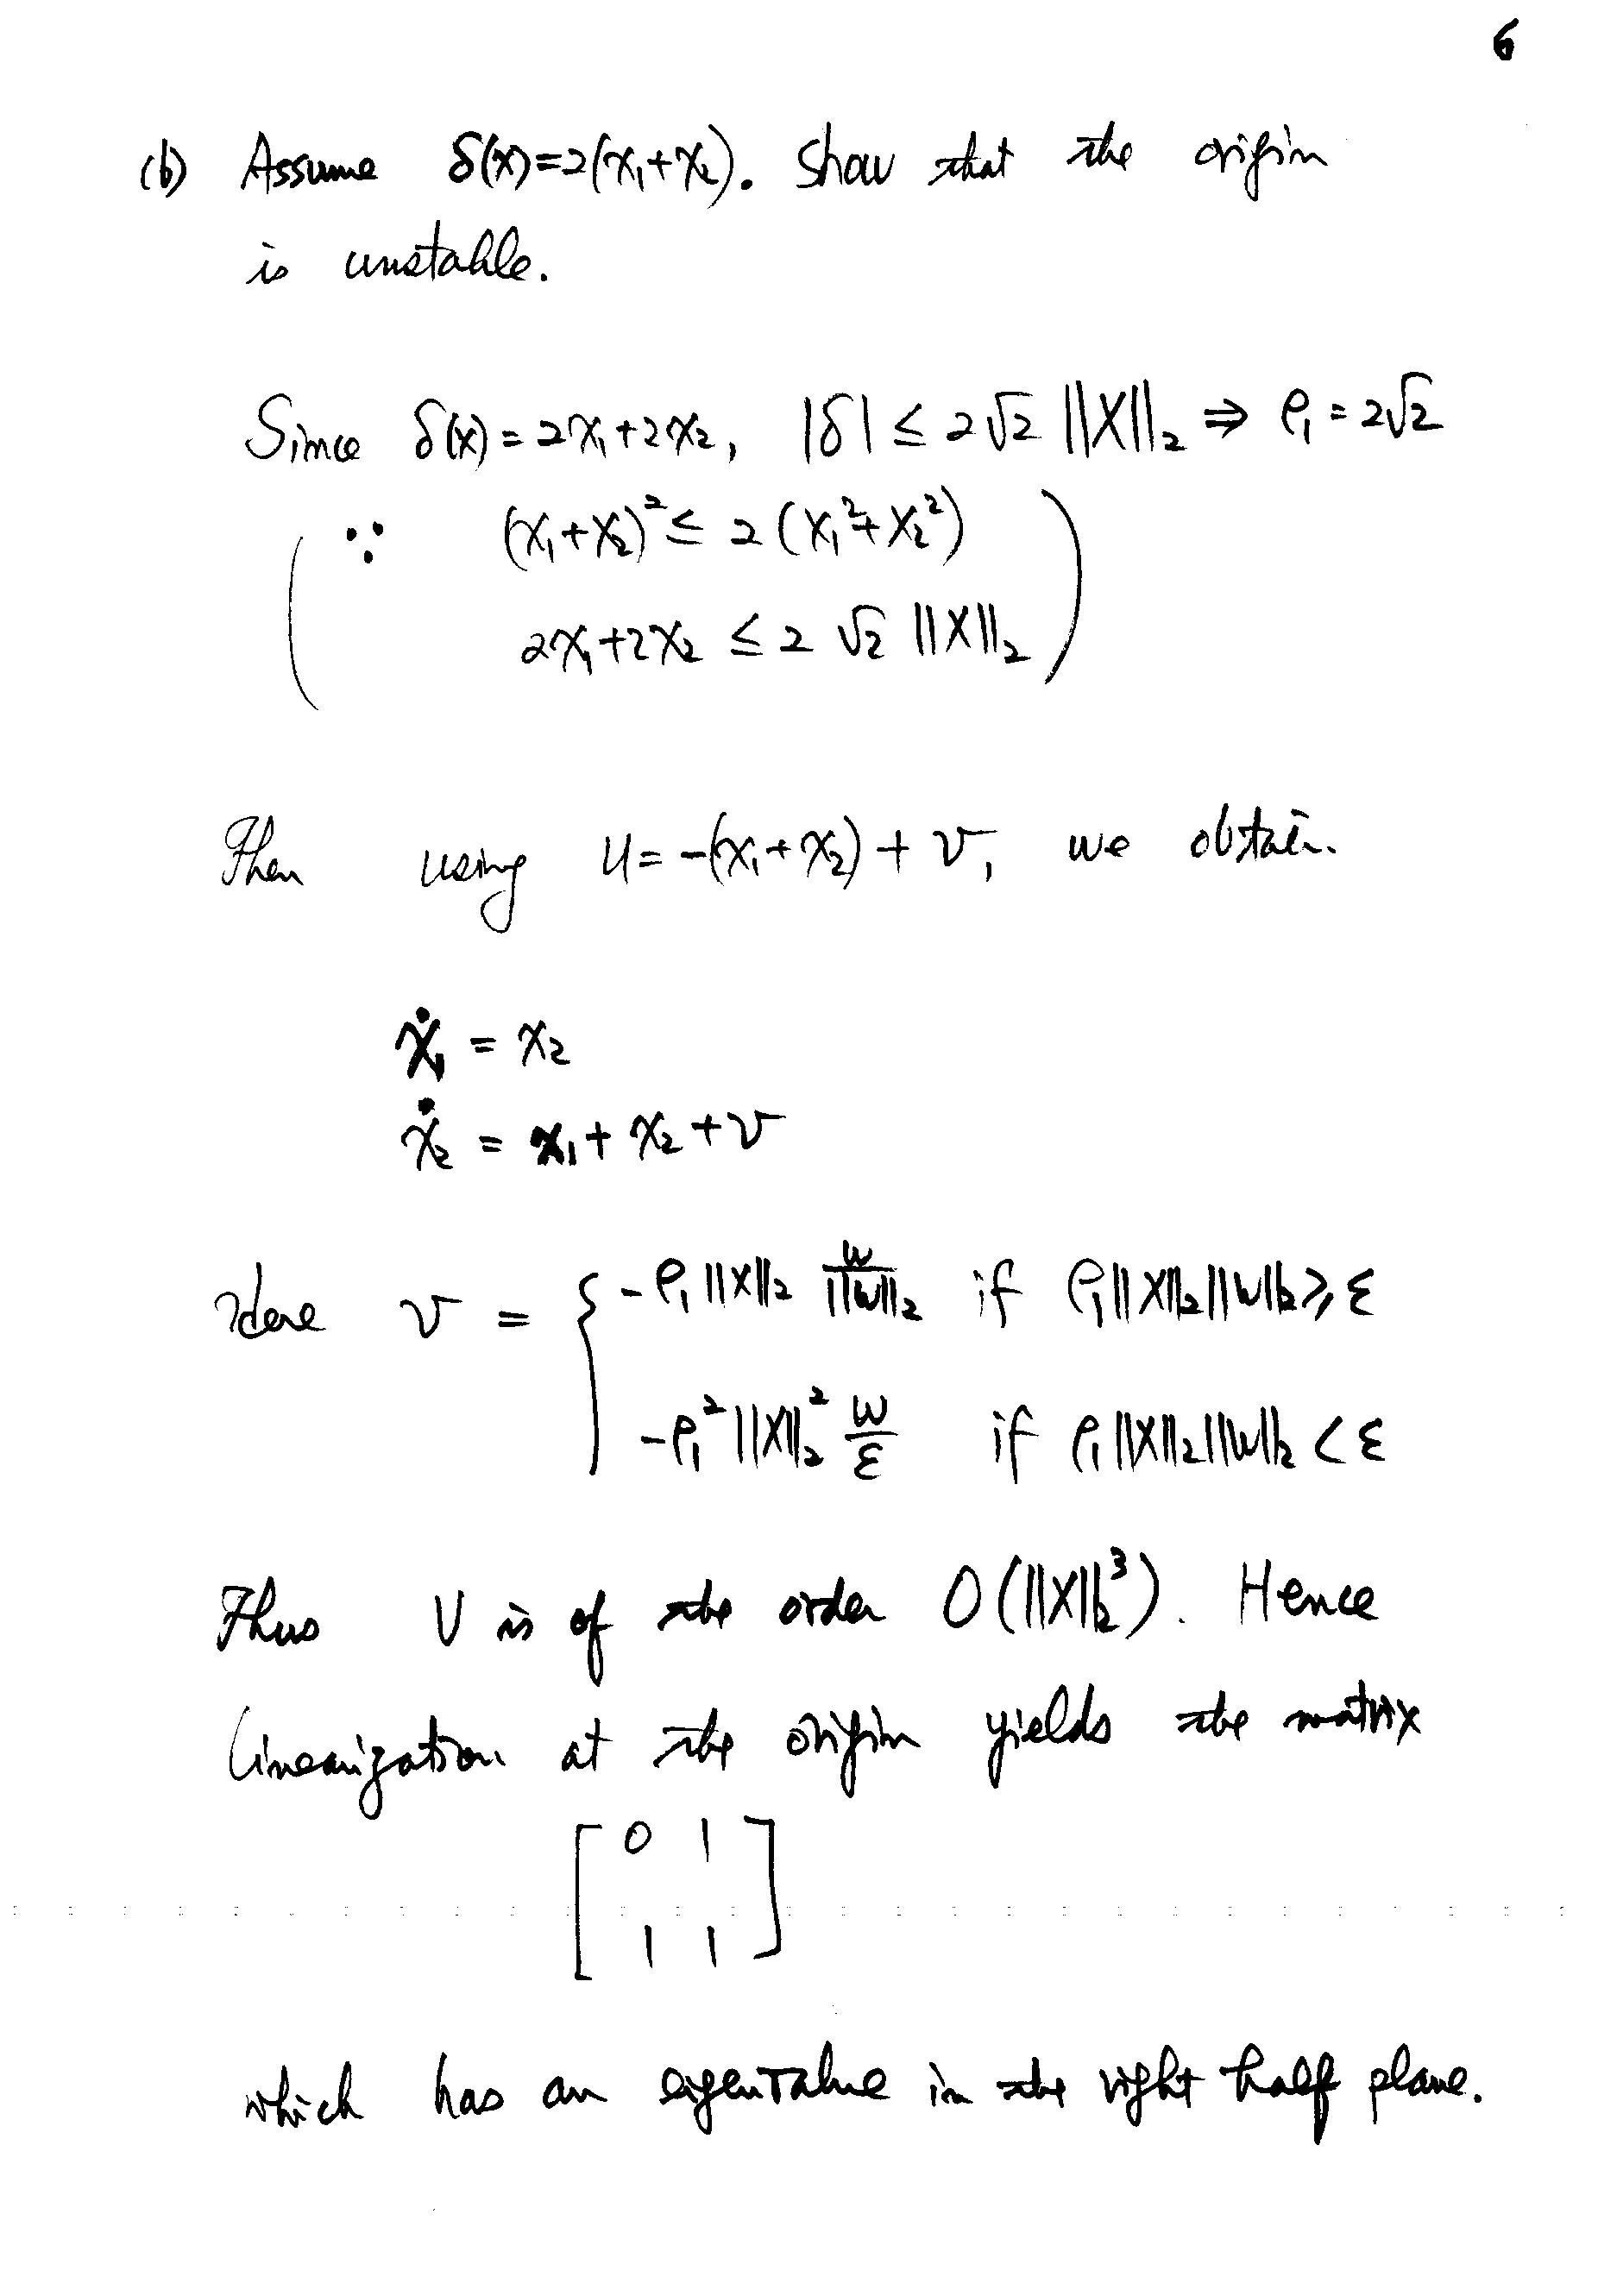 6
(b) Assume δ(x)=2(x₁+x₂). Show that the origin
is unstable.
Since δ(x)=2x₁+2x₂, |δ| ≤ 2√2 ||x||₂ ⇒ ρ₁ = 2√2
( ∵ (x₁+x₂)² ≤ 2(x₁²+x₂²)
2x₁+2x₂ ≤ 2√2 ||x||₂ )
Then using u = -(x₁+x₂) + v, we obtain
ẋ₁ = x₂
ẋ₂ = x₁ + x₂ + v
Here v = { -ρ₁||x||₂ w/||w||₂ if ρ₁||x||₂||w||₂ ≥ ε
-ρ₁²||x||₂² w/ε if ρ₁||x||₂||w||₂ < ε
Thus v is of the order O(||x||₂³). Hence
linearization at the origin yields the matrix
[ 0 1
1 1 ]
which has an eigenvalue in the right half plane.